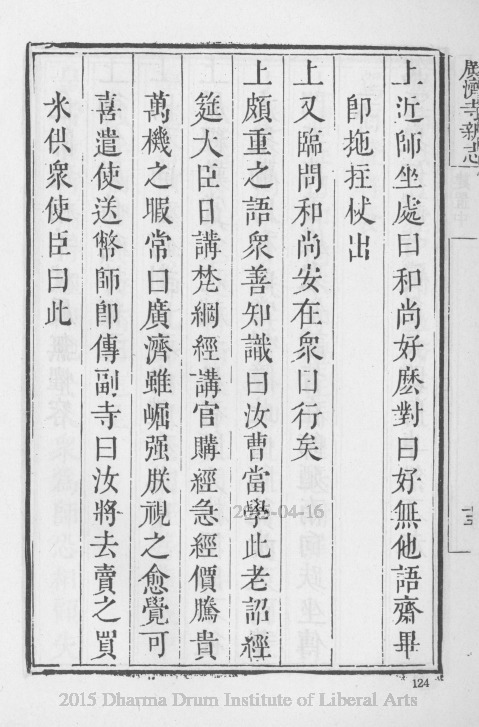 廣濟寺新志
上近師坐處曰和尚好麽對曰好無他語齋畢
卽拖拄杖出
上又臨問和尚安在衆曰行矣
上頗重之語衆善知識曰汝曹當學此老詔經
筵大臣日講梵綱經講官購經急經價騰貴
萬機之暇常曰廣濟雖崛强朕視之愈覺可
喜遣使送幣師卽傳副寺曰汝將去賣之買
米供衆使臣曰此
124
2015-04-16
2015 Dharma Drum Institute of Liberal Arts